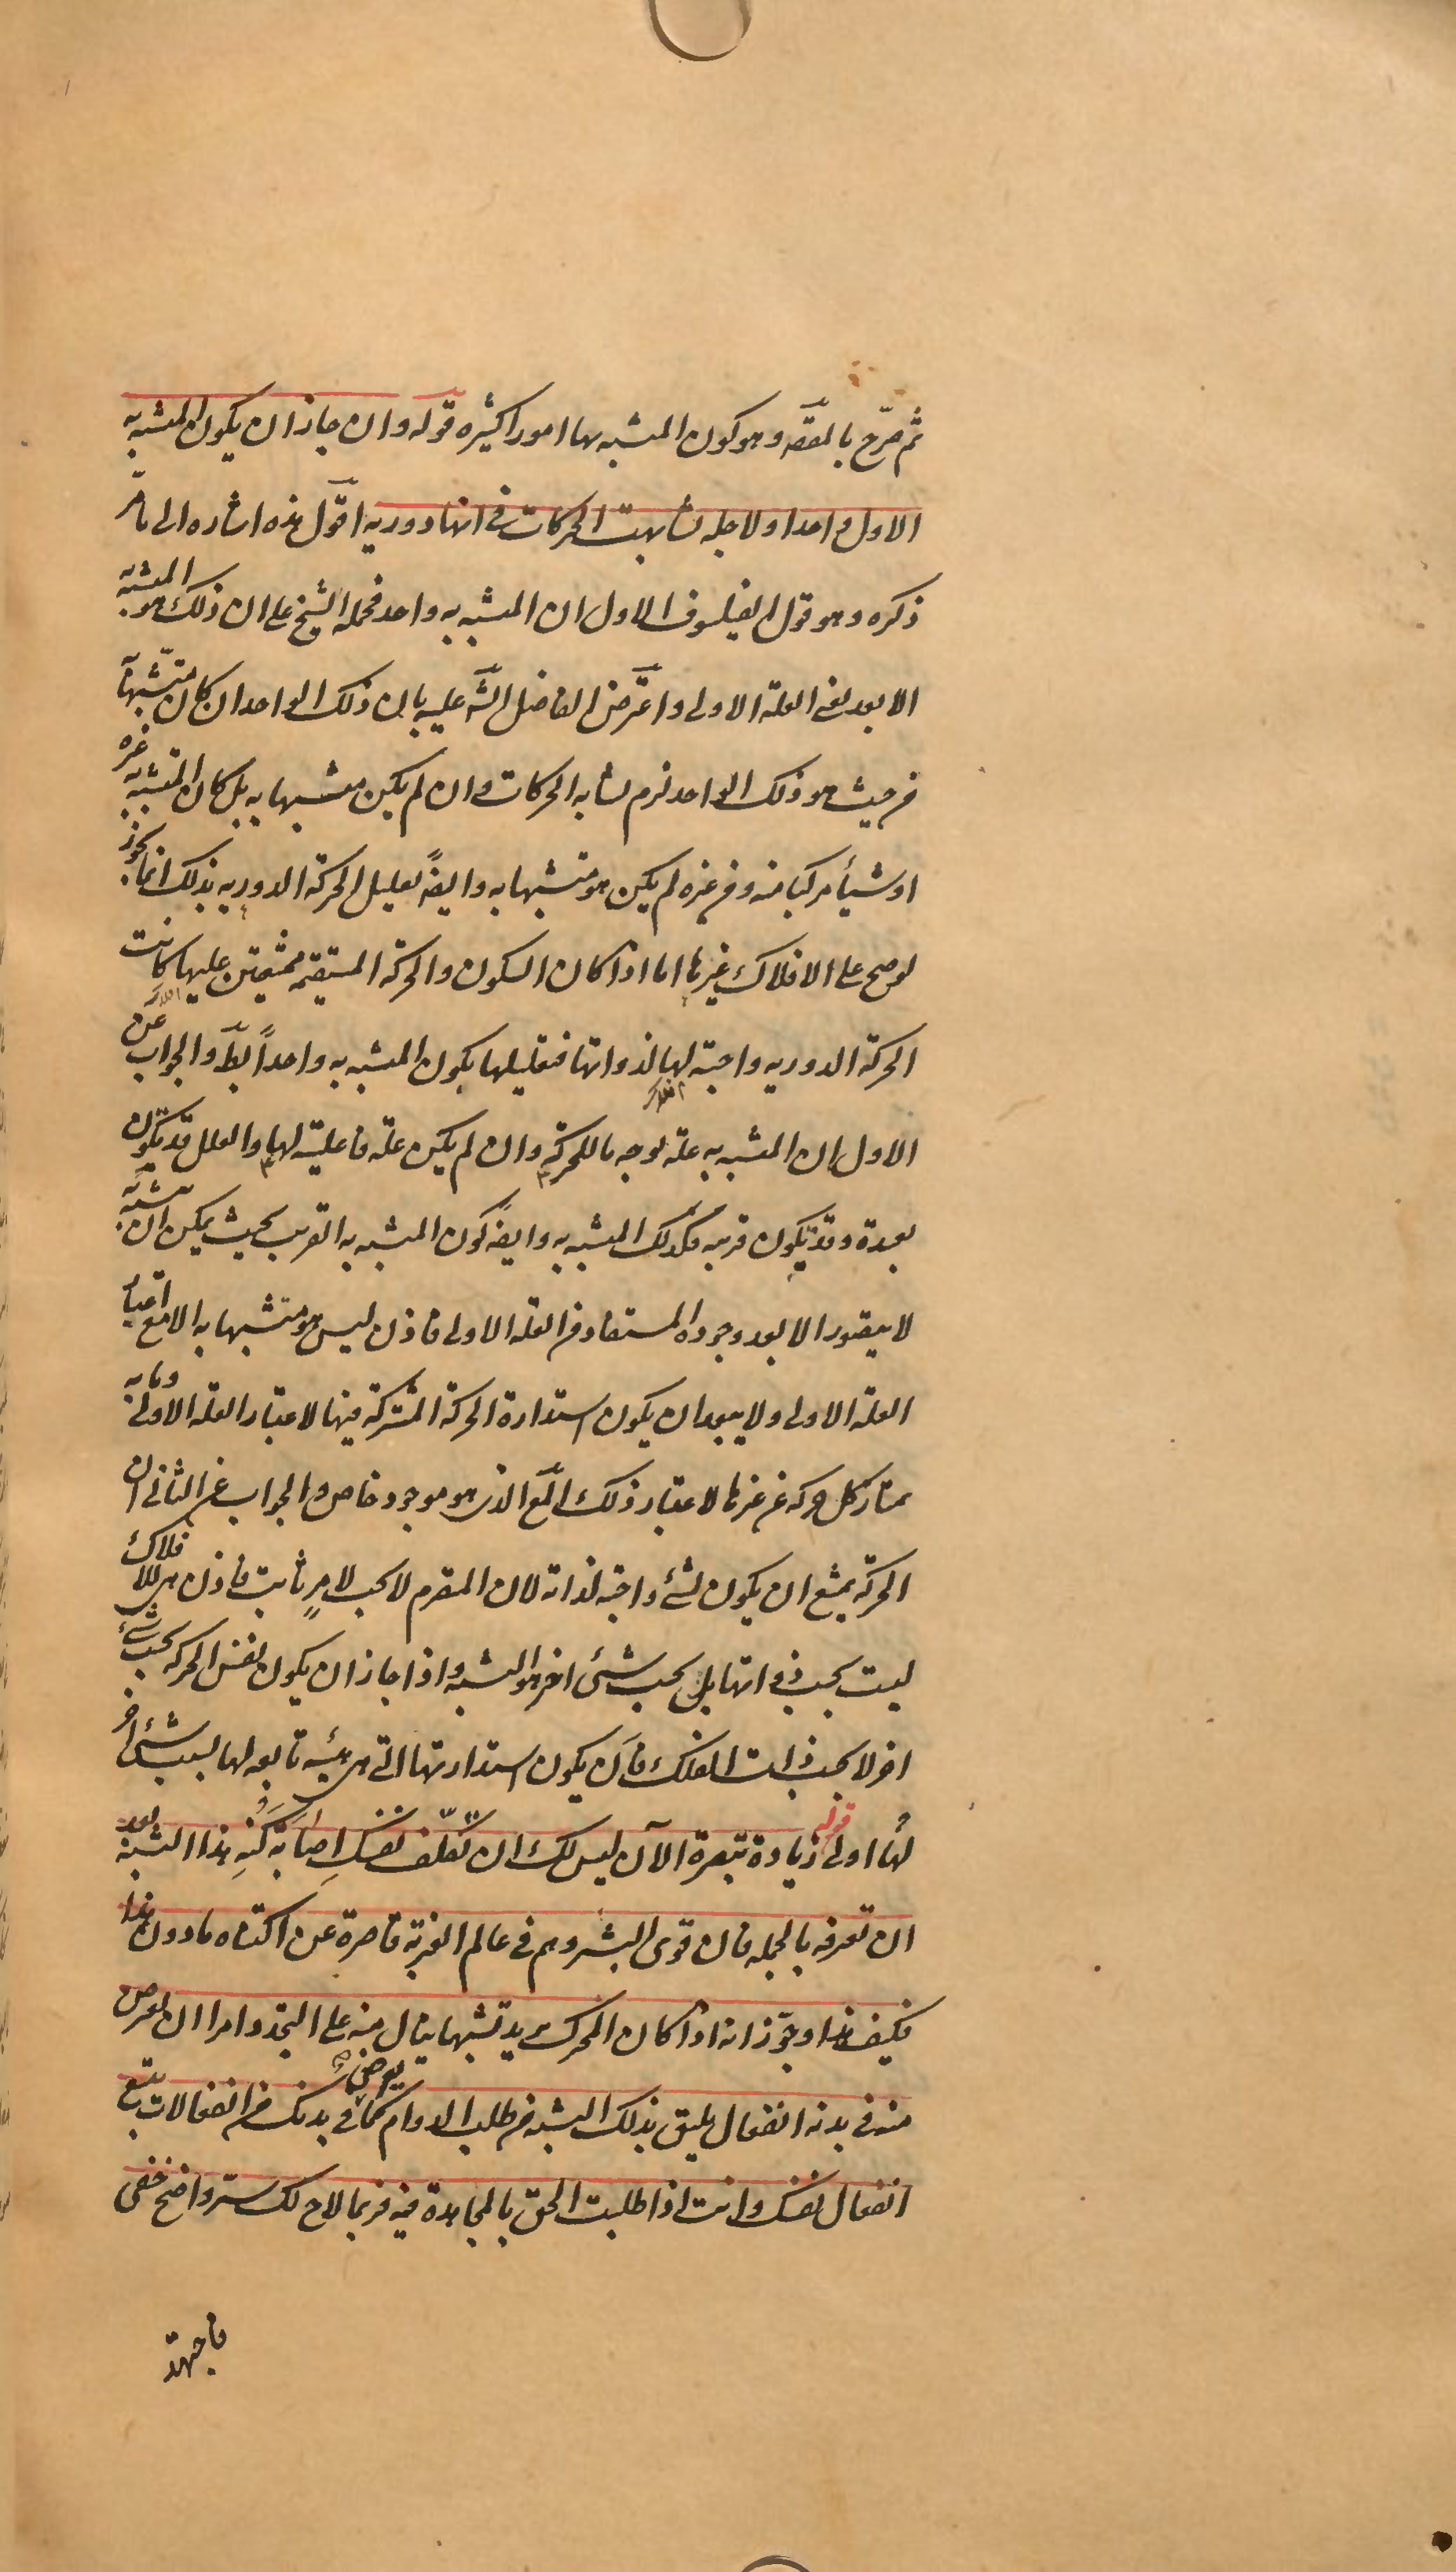 ثم صرّح بالمقصَ وهو كون المشبه بها امورا كثيره قوله وان جاز ان يكون المتشبه به
الاول واحدا ولاجله تشابهت الحركات فى انها دوريه اقول هذه اشاره الى ما مرّ
ذكره وهو قول الفيلسوف الاول ان المتشبه به واحد فحمله الشيخ على ان ذلك هو المتشبه به
الابعد يعنى العلة الاولى واعترض الفاضل الشَ عليه بان ذلك الواحد ان كان متشبّهاً به
من حيث هو ذلك الواحد لزم تشابه الحركات وان لم يكن متشبها به بل كان المتشبه به غيره
او شيأ مركبا منه ومن غيره لم يكن هو متشبها به وايضً تعليل الحركة الدوريه بذلك انما يجوز
لو صح على الافلاك غيرها اما اذا كان السكون والحركة المستقيمه ممتنعتين عليها كانت
الحركة الدوريه واجبة لها لذواتها فتعليلها بكون المتشبه به واحداً بطَ والجواب عن
الاول ان المتشبه به علة بوجه ما للحركة وان لم يكن علة فاعلية لها والعلل قد تكون
بعيدة وقد يكون قريبه فكذلك المتشبه به وايضً كون المتشبه به القريب بحيث يمكن ان يتشبه به
لا يتصور الا بعد وجوده المستفاد من العلة الاولى فاذن ليس هو متشبها به الا مع اعتبار
العلة الاولى ولا يبعد ان يكون استدارة الحركة المشتركة فيها لاعتبار العلة الاولى وما به
يمتاز كل حركه عن غيرها لاعتبار ذلك المتَع الذى هو موجود خاص والجواب عن الثانى ان
الحركة يمتنع ان يكون لشئ واجبة لذاته لان المتصرم لا يجب لامرٍ ثابت فاذن هى للافلاك
ليست بحسب ذواتها بل بحسب شئ اخر هو التشبه واذا جاز ان يكون نفس الحركه بحسب شئ
اخر لا بحسب ذات الفلك فان يكون استدارتها التى هى هيئة تابعه لها بسبب شئ اخر
لها اولى قوله زيادة تبصرة الآن ليس لك ان تكلّف نفسك اصابة كُنهِ هذا التشبه بعد
ان تعرفه بالجمله فان قوى البشر وهم فى عالم الغربة قاصرة عن اكتناه ما دون هذا
فكيف هذا وجوّز انه اذا كان المحرك يريد تشبها ينال منه على التجدد امرا ان يعرض
منه فى بدنه انفعال يليق بذلك التشبه من طلب الدوام كما يعرض فى بدنك من انفعالات يتبع
انفعال نفسك وانت اذا طلبت الحق بالمجاهدة فيه فربما لاح لك سرّ واضح خفى
فاجتهد